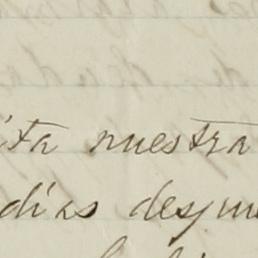 ita nuestra
dias despu